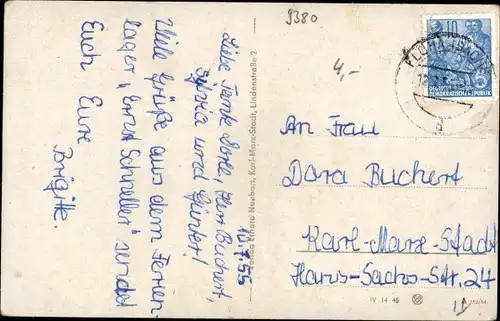 9380
4,-
10
DEUTSCHE
DEMOKRATISCHE REPUBLIK
FLÖHA
An Frau
Dora Buchert
Karl-Marx-Stadt
Hans-Sachs-Str. 24
IV 14 45
Verlag Erhard Neubert, Karl-Marx-Stadt, Lindenstraße 2
18.7.55
Liebe Tante Dorle, Herr Buchert,
Sylvia und Günter!
Viele Grüße aus dem Ferien-
lager „Ernst Schneller" sendet
Euch Eure
Brigitte.